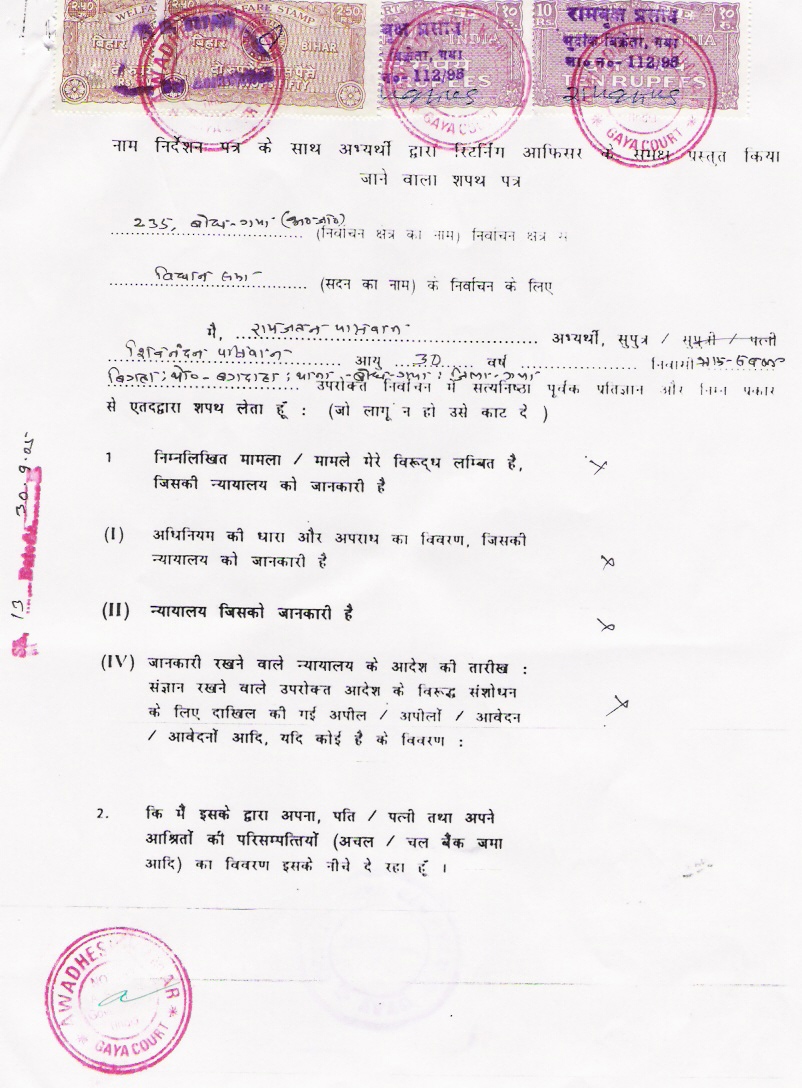 २.५० WELFARE STAMP 2.50
बिहार बिहार BIHAR
रामवृक्ष प्रसाद
मुद्रांक विक्रेता, गया
ला० न०- 112/98
TEN RUPEES
AWADHES
GAYA COURT
नाम निर्देशन पत्र के साथ अभ्यर्थी द्वारा रिटर्निंग आफिसर के समक्ष प्रस्तृत किया
जाने वाला शपथ पत्र
235, बोध-गया (अ०जा०) (निर्वाचन क्षेत्र का नाम) निर्वाचन क्षेत्र से
विधान सभा (सदन का नाम) के निर्वाचन के लिए
मै, रामजतन पासवान अभ्यर्थी, सुपुत्र / सुपुत्री / पत्नी
शिवनंदन पासवान आयु 30 वर्ष निवासी
बिगहा; पो०- बगदाहा; थाना-बोध-गया; जिला-गया उपरोक्त निर्वाचन में सत्यनिष्ठा पूर्वक प्रतिज्ञान और निम्न प्रकार
से एतदद्वारा शपथ लेता हूँ : (जो लागू न हो उसे काट दे )
1 निम्नलिखित मामला / मामले मेरे विरूद्ध लम्बित है,
जिसकी न्यायालय को जानकारी है
(I) अधिनियम की धारा और अपराध का विवरण, जिसकी
न्यायालय को जानकारी है
(II) न्यायालय जिसको जानकारी है
(IV) जानकारी रखने वाले न्यायालय के आदेश की तारीख :
संज्ञान रखने वाले उपरोक्त आदेश के विरूद्ध संशोधन
के लिए दाखिल की गई अपील / अपीलों / आवेदन
/ आवेदनों आदि, यदि कोई है के विवरण :
2. कि मैं इसके द्वारा अपना, पति / पत्नी तथा अपने
आश्रितों की परिसम्पत्तियों (अचल / चल बैंक जमा
आदि) का विवरण इसके नीचे दे रहा हूँ ।
Sl. 13 Dated 30.9.05
AWADHES AR
GAYA COURT